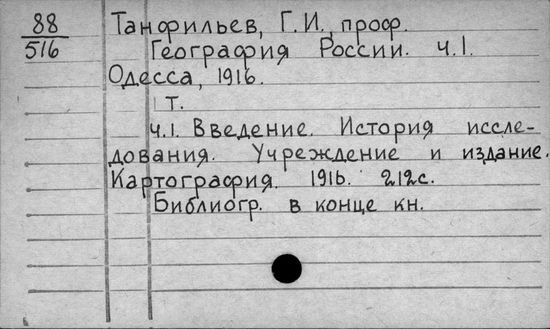 88
516
Танфильев, Г. И., проф.
География России. ч. I.
Одесса, 1916.
1 т.
ч. I. Введение. История иссле-
дования. Учреждение и издание.
Картография. 1916. 212с.
Библиогр. в конце кн.